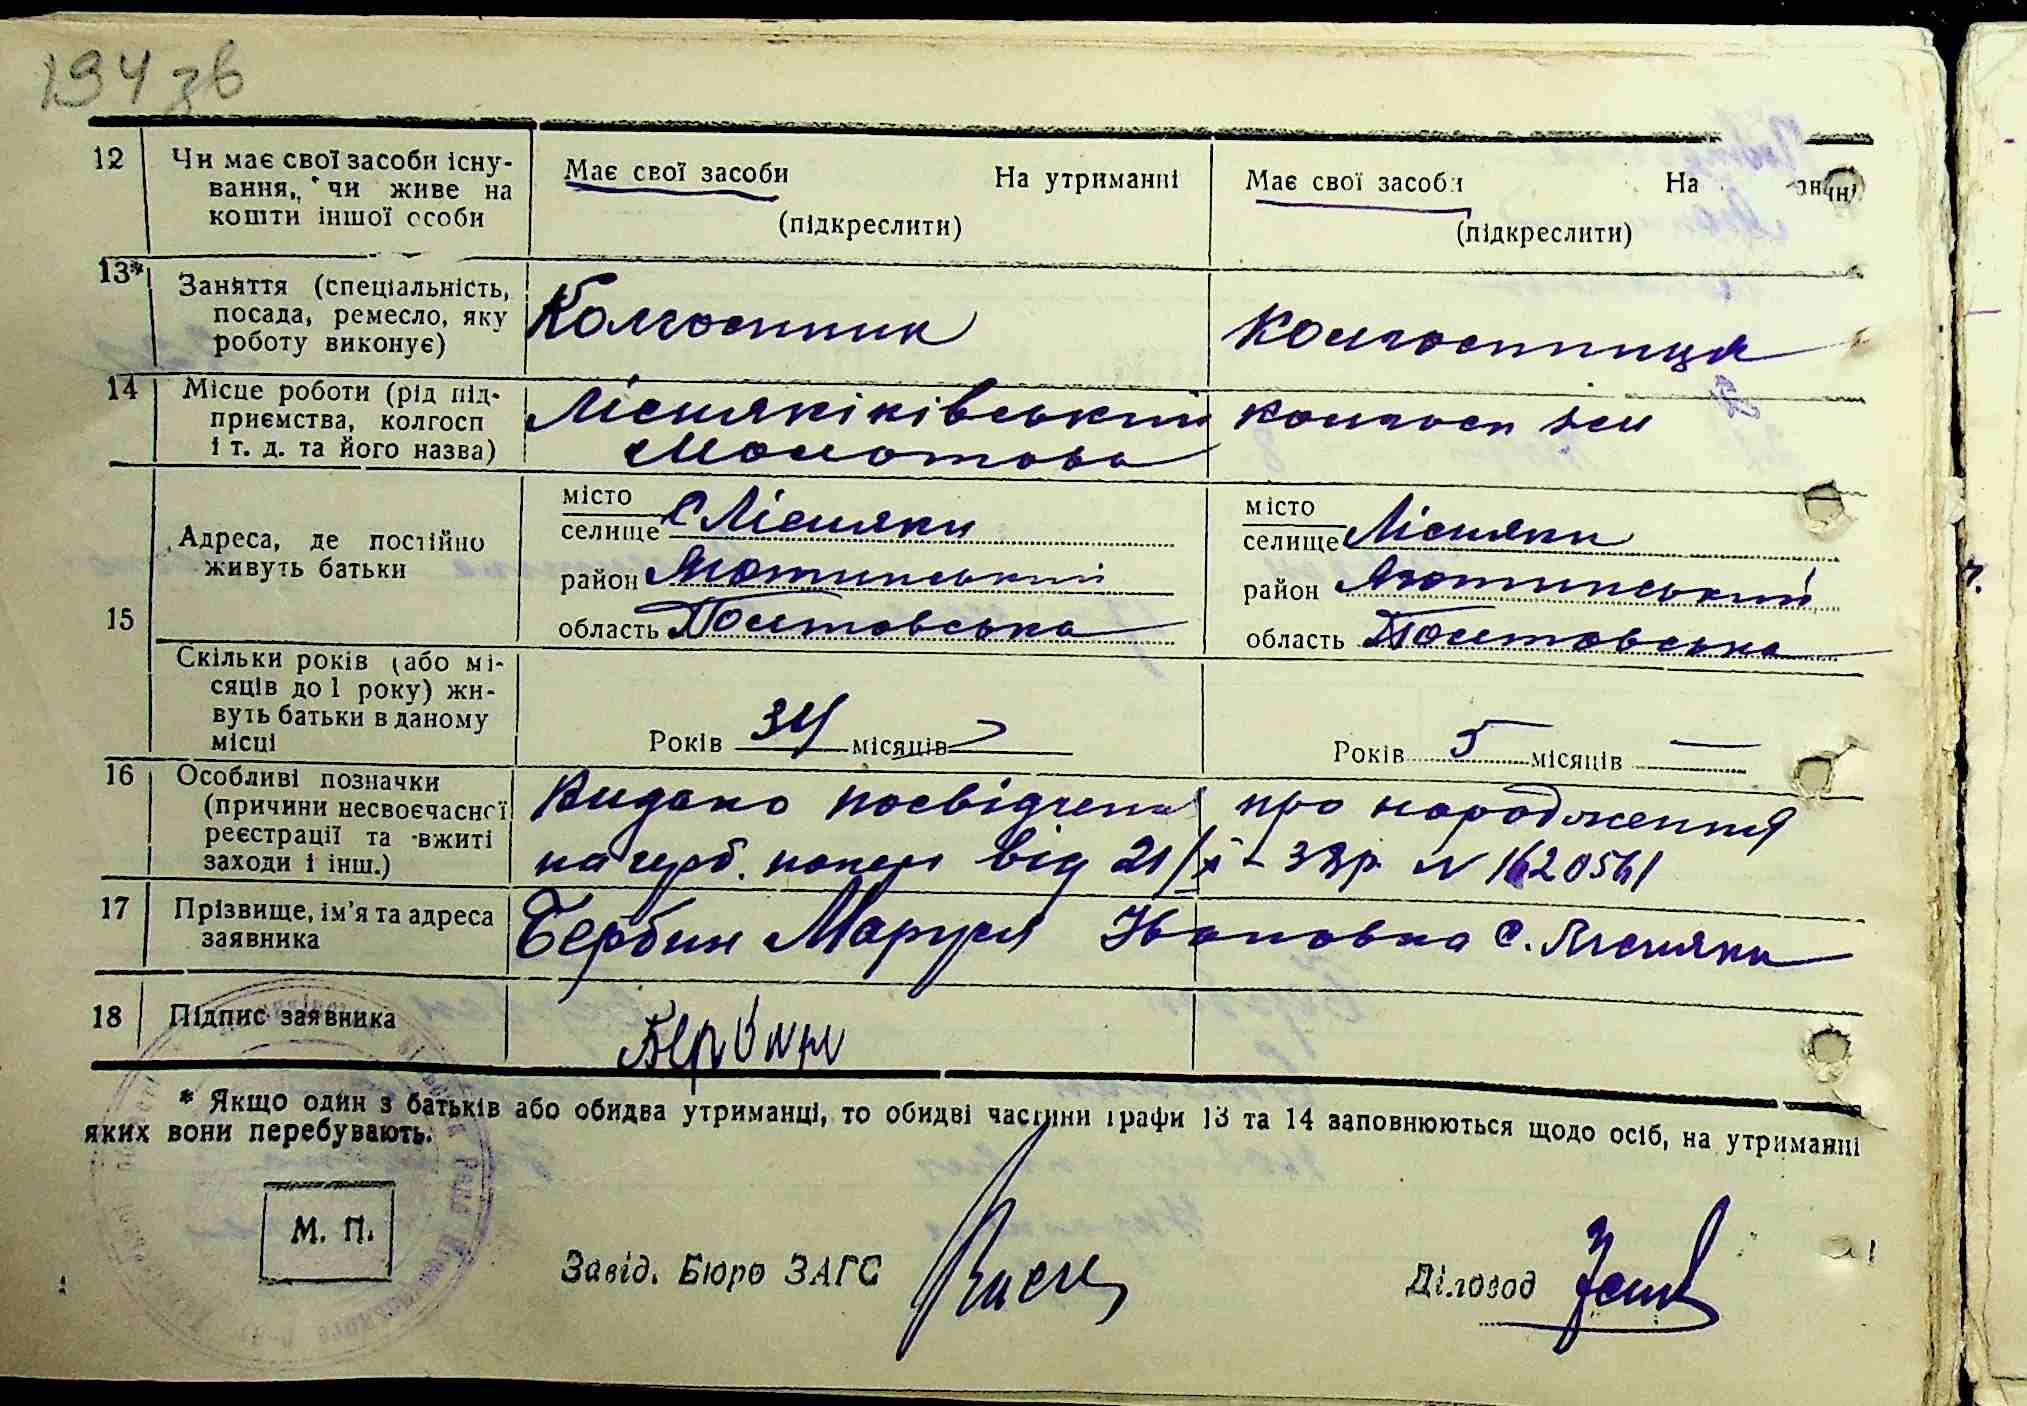 194 зв
12 Чи має свої засоби існу-
вання, чи живе на
кошти іншої особи
Має свої засоби На утриманні
(підкреслити)
Має свої засоби На
(підкреслити)
13* Заняття (спеціальність,
посада, ремесло, яку
роботу виконує)
Колгоспник
Колгоспниця
14 Місце роботи (рід під-
приємства, колгосп
і т. д. та його назва)
Лісняківський колгосп ім
Молотова
15 Адреса, де постійно
живуть батьки
місто
селище с Лісняки
район Яготинський
область Полтовська
місто
селище Лісняки
район Яготинський
область Полтовська
Скільки років (або мі-
сяців до 1 року) жи-
вуть батьки в даному
місці
Років 34 місяців
Років 5 місяців —
16 Особливі позначки
(причини несвоєчасної
реєстрації та вжиті
заходи і інш.)
Видано посвідчення про народження
на герб. папері від 21/X – 39р. N 1620561
17 Прізвище, ім'я та адреса
заявника
Бербин Маруся Івановна с. Лісняки
18 Підпис заявника
Бербин
* Якщо один з батьків або обидва утриманці, то обидві частини графи 13 та 14 заповнюються щодо осіб, на утриманні
яких вони перебувають.
М. П.
Завід. Бюро ЗАГС
Діловод